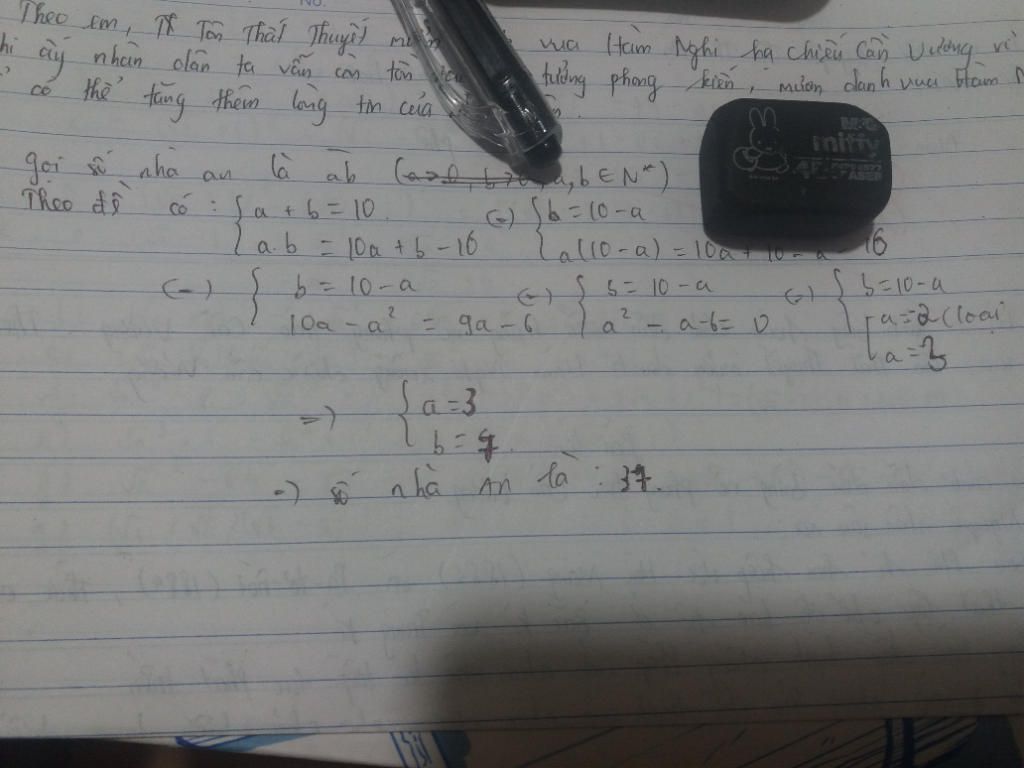 No.
Theo em, TT Tôn Thất Thuyết mượn vua Hàm Nghi hạ chiếu Cần Vương vì
ấy nhân dân ta vẫn còn tồn tưởng phong kiến, mượn danh vua Hàm
có thể tăng thêm lòng tin của
gọi số nhà an là ab (a, b ∈ N*)
Theo đề có : { a + b = 10 (=) { b = 10 - a
a.b = 10a + b - 16 a(10 - a) = 10a + 10 - a - 16
(=) { b = 10 - a (=) { b = 10 - a (=) { b = 10 - a
10a - a² = 9a - 6 a² - a - 6 = 0 [ a = 2 (loại
a = 3
=) { a = 3
b = 7
=) số nhà An là : 37.
M&G
miffy